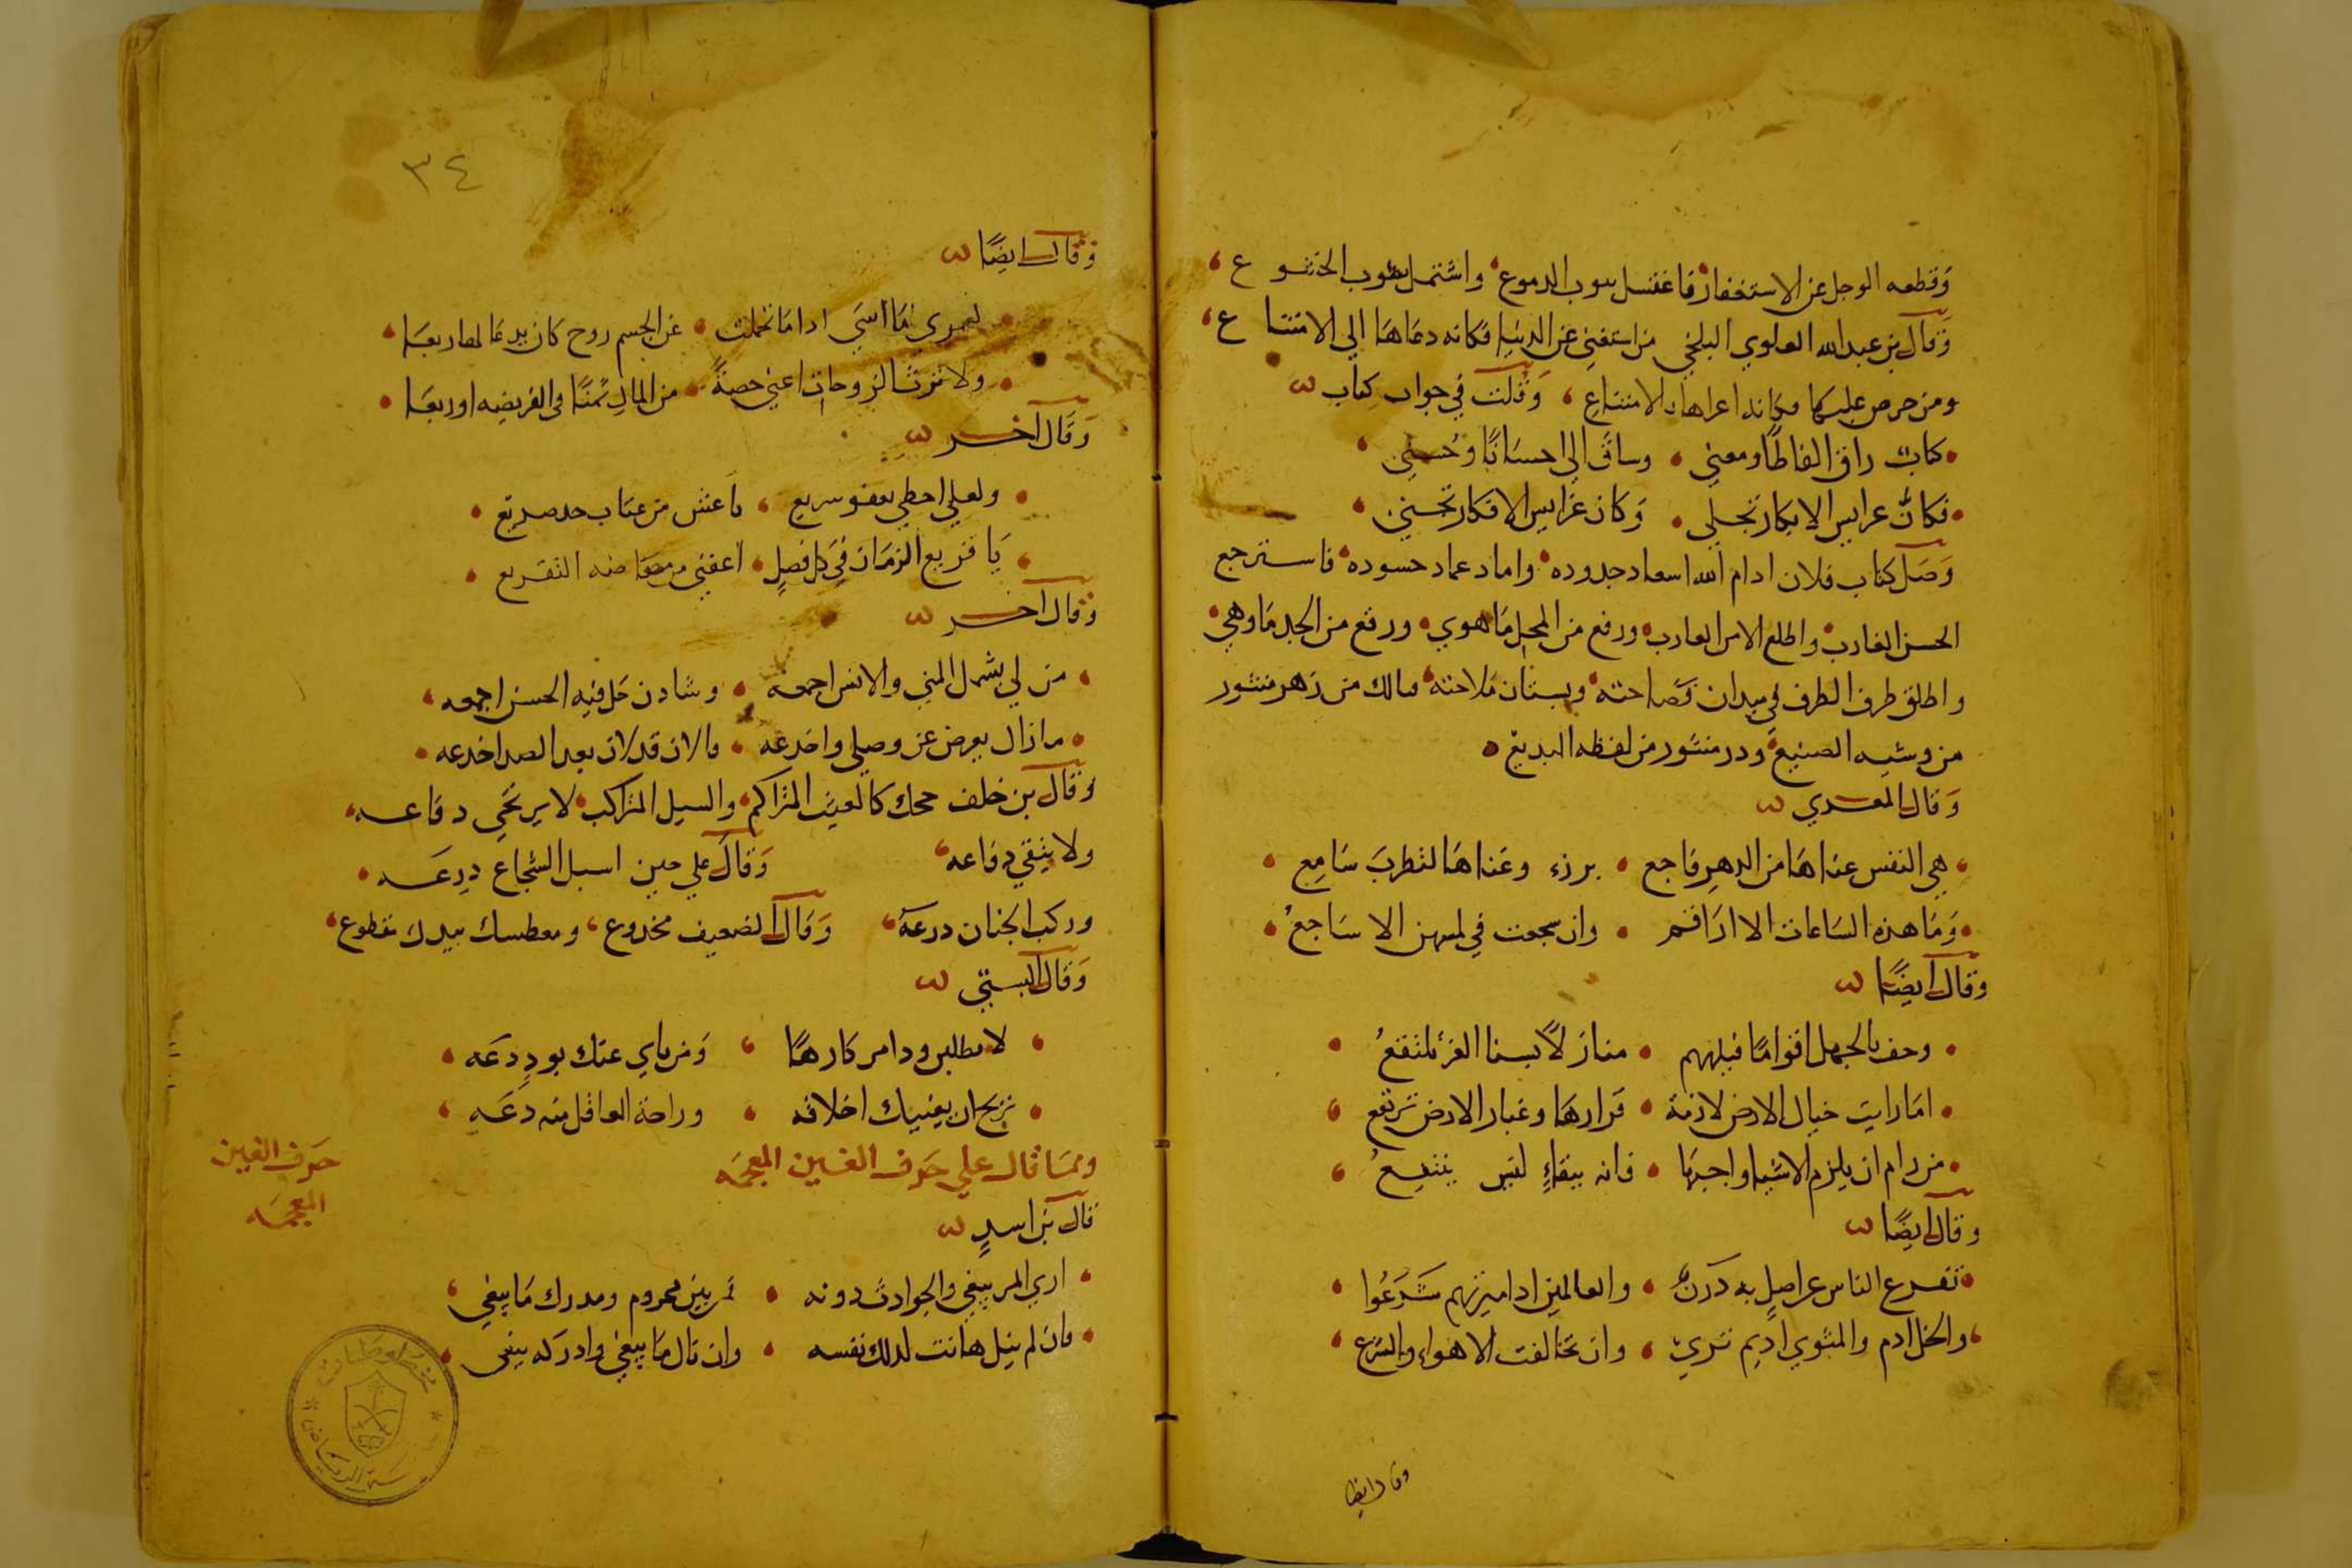 وقطعه الوجل عن الاستغفار فاغتسل بثوب الدموع واشتمل بثوب الخشوع
وقال بن عبد الله العلوي البلخي من استغنى عن الدنيا فكانه دعاها الى الامتناع
ومن حرص عليها فكانه اغراها بالامتناع وقلت في جواب كتاب
كتاب راق الفاظا ومعنى وساق الي احسانا وحسنى
فكان عرايس الابكار تجلى وكان غرايس الافكار تجنى
وصل كتاب فلان ادام الله اسعاد جدوده واماد عماد حسوده فاسترجع
الحسن الغارب واطلع الامر العازب ورفع من المجد ما هوي ورقع من الجد ما وهي
واطلق طرف الطرف في ميدان فصاحته وبستان ملاحته فمالك من زهر منثور
من وشيه الصنيع ودر منثور من لفظه البديع
وقال المعري
هي النفس عناها من الدهر فاجع برزء وغناها لتطرب سامع
وما هذه الساعات الا اراقم وان سجعت في لمسهن الا ساجع
وقال ايضا
وحف بالجهل اقواما فبلغهم منازلا بسنا العز تلتفع
اما رايت جبال الارض لازمة قرارها وغبار الارض ترتفع
من رام ان يلزم الاشيا واجبها فانه ببقاء ليس ينتفع
وقال ايضا
تفرع الناس عن اصل به درن والعالمين اذا ميزتهم شرعوا
والخل ادم والمثوي اديم ثرى وان تخالفت الاهواء والشرع
وقال ايضا
٣٤
وقال ايضا
لعمري ما اسى اذا ما تحملت عن الجسم روح كان يدعا لها ربعا
ولا ترث الزوجات اعني حصة من المال ثمنا في الفريضه او ربعا
وقال آخر
ولعلي احظى بعفو سريع
يا قريع الزمان في كل فصل اعفني من مضاضة التقريع
وقال آخر
من لي بشمل المنى والانس اجمعه وشادن حل فيه الحسن اجمعه
ما زال يعرض عن وصلي واخدعه فالان قد لان بعد الصد اخدعه
وقال بن خلف محك كالغيث المتراكم والسيل المتراكب لا يرتجى دفاعه
ولا يتقي دفاعه وقال علي حين اسبل الشجاع درعه
وركب الجنان درعه وقال الضعيف مخدوع ومعطسك بيدك مقطوع
وقال البستي
لا تطلبن ود امر كارها ومن ناي عنك بود دعه
تربح ان يغنيك اخلاقه وراحة العاقل منه دعه
ومما قال على حرف الغين المعجمه
حرف الغين
المعجمه
قال بن اسد
ارى المر يبغي والحوادث دونه فمن بين محروم ومدرك ما يبغي
فان لم ينل هانت لذلك نفسه وان نال ما يبغي وادركه يبغي